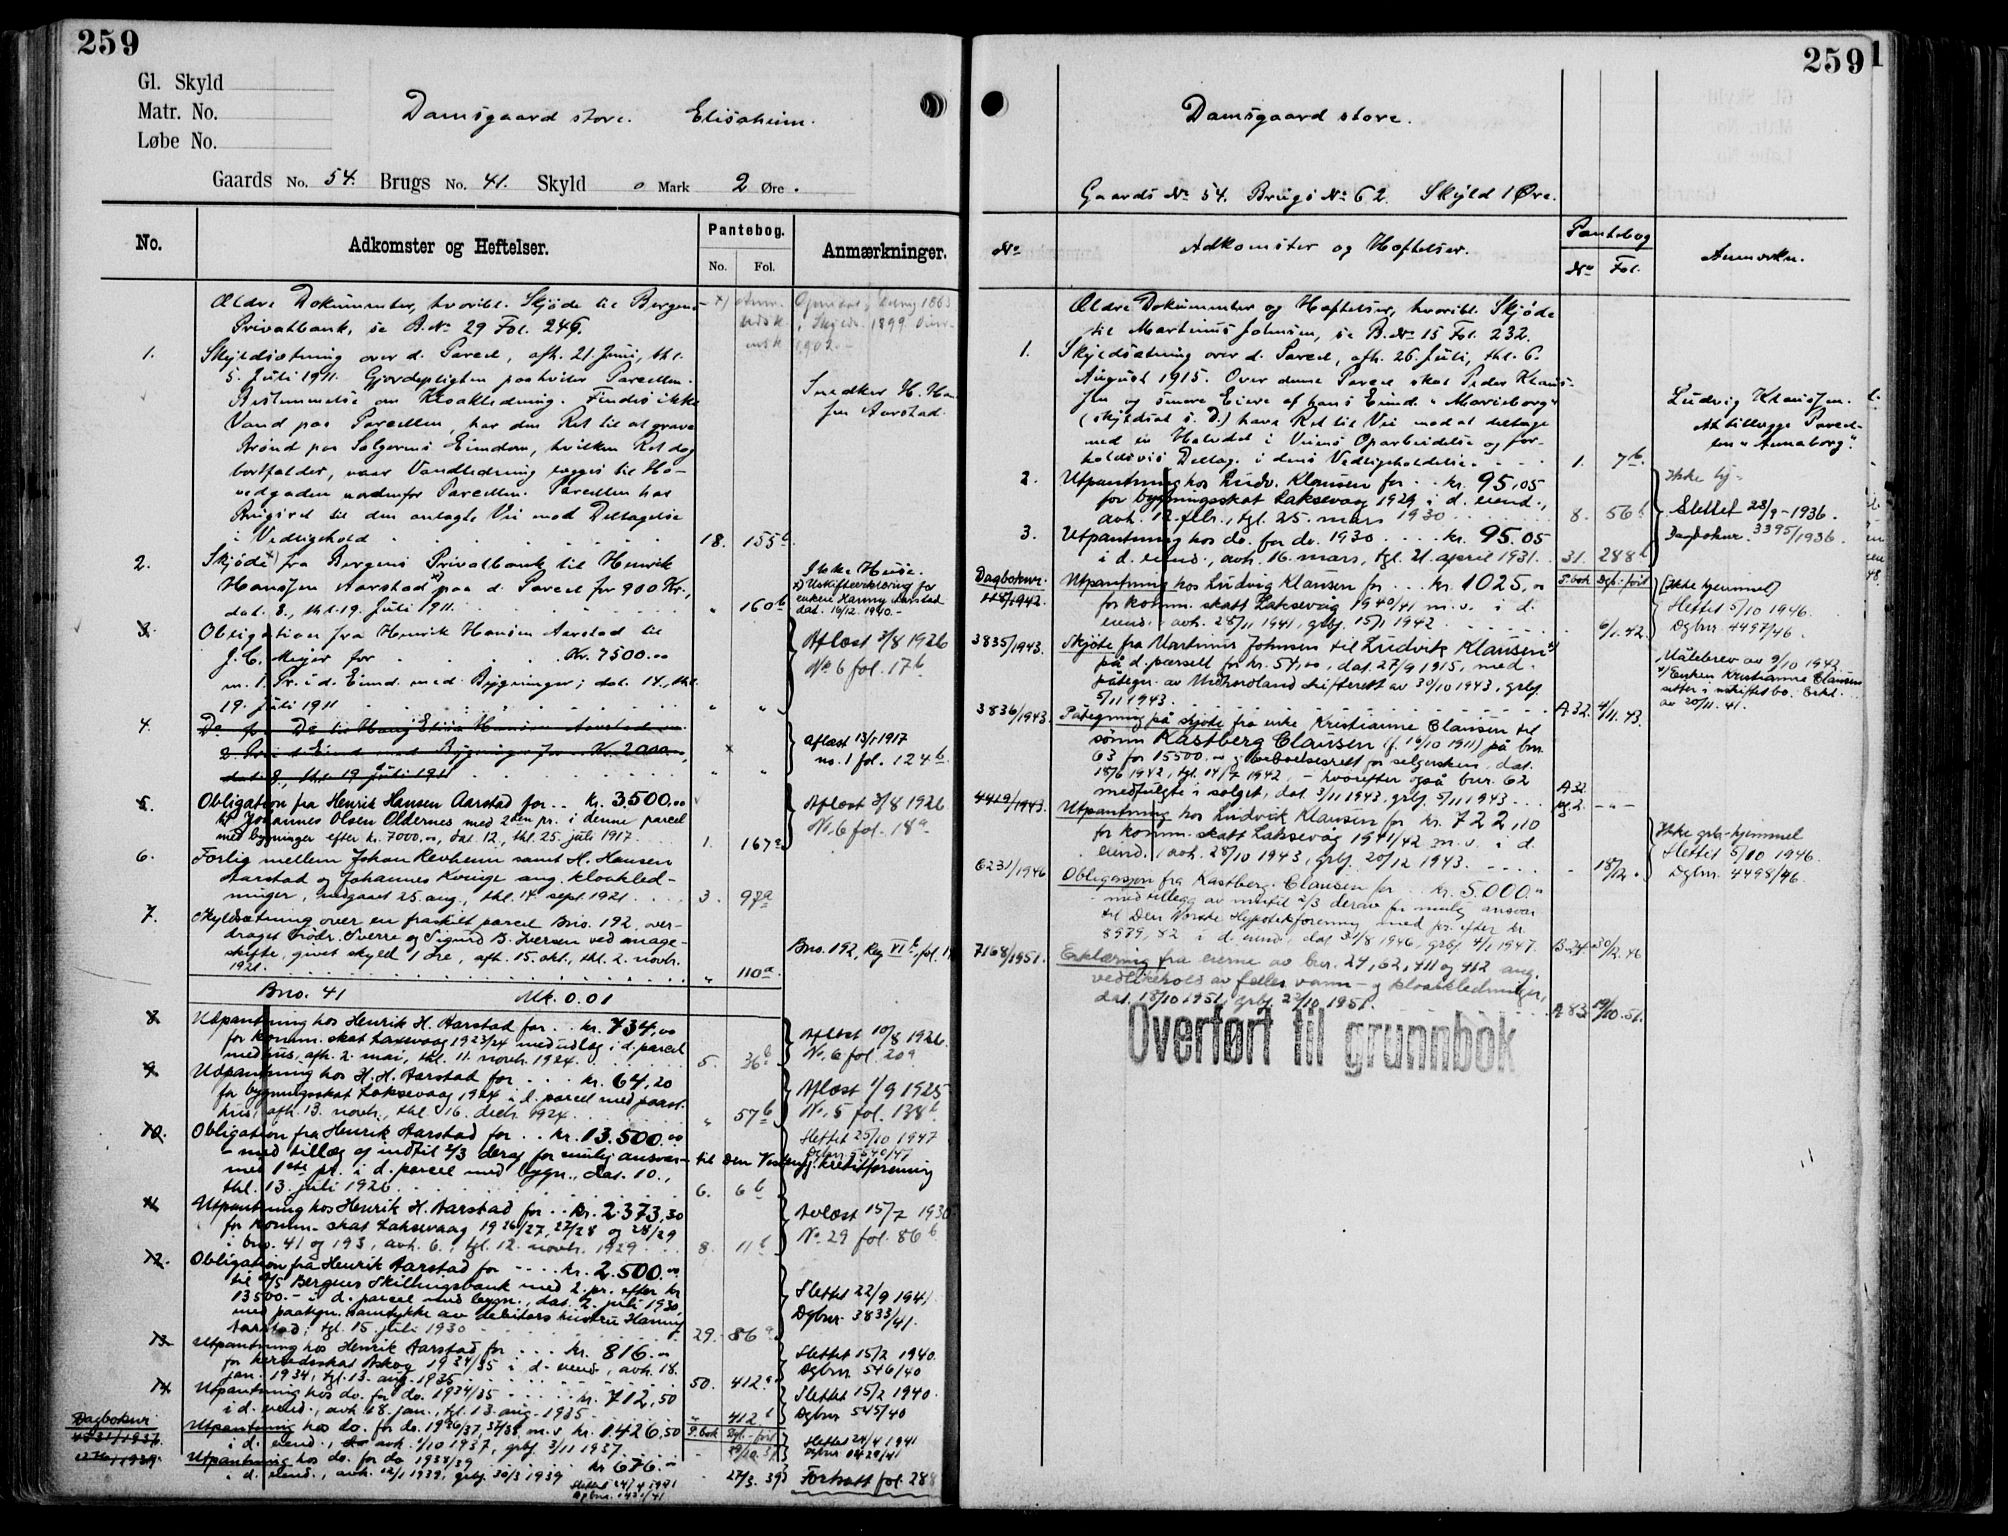 259
Gl. Skyld
Matr. No.
Løbe No.
Damsgaard store. Elisaheim.
Gaards No. 54. Brugs No. 41. Skyld 0 Mark 2 Øre.
No.
Adkomster og Heftelser.
Pantebog.
No. Fol.
Anmærkninger.
Ældre Dokumenter, hvoribl. Skjøde til Bergens
Privatbank, se B. No 29 Fol. 246.
1. Skyldsætning over d. Parcel, afh. 21. Juni, thl.
5. Juli 1911. Gjerdepligten paahviler Parcellen.
Bestemmelse om Kloakledning. Findes ikke
Vand paa Parcellen, har den Ret til at grave
Brønd paa Sælgerens Eiendom, hvilken Ret dog
bortfalder, naar Vandledning lægges til Ho-
vedgaden nedenfor Parcellen. Parcellen har
Brugsret til den anlagte Vei mod Deltagelse
i Vedligehold 18. 155b
Snedker H. Han-
sen Aarstad.
2. Skjøde x) fra Bergens Privatbank til Henrik
Hanssen Aarstad paa d. Parcel for 900 Kr.,
dat. 8., thl. 19. Juli 1911. " 160b
x) Uskifteerklæring for
enken Hanny Aarstad
dat. 16/12. 1940.-
3. Obligation fra Henrik Hansen Aarstad til
J. C. Meyer for Kr. 7500.00
m. 1. Pr. i d. Eiend. med Bygninger; dat. 14., thl.
19. Juli 1911 " "
Aflæst 3/8 1926
No. 6 fol. 17b
4. Do fra Do til Hansen Aarstad
2. Pr. i d. Eiend med Bygninger for Kr. 2000.
dat. 8., thl. 19 Juli 1911 " "
Aflæst 13/1 1917
no. 1 fol. 124b
5. Obligation fra Henrik Hansen Aarstad for .. kr. 3.500.00
til Johannes Olsen Oldernes med 2den pr. i denne parcel
med bygninger efter kr. 7000.00, dat. 12., thl. 25. juli 1917. 1. 167a
Aflæst 3/8 1926
No. 6 fol. 18a
6. Forlig mellem Johan Revheim samt H. Hansen
Aarstad og Johannes Kvinge ang. kloakled-
ninger, indgaaet 25. aug., thl. 14. sept. 1921. 3. 98a
7. Skyldsætning over en fraskilt parcel Bno. 192, over-
draget brødr. Sverre og Sigurd B. Iversen ved mage-
skifte, givet skyld 1 øre, afh. 15. okt., thl. 2. novbr.
1921. " 110a
Bno. 192, Reg VI b, fol. 1
Bno. 41 Mk. 0.01
8. Udpantning hos Henrik H. Aarstad for .. kr. 734.00
for komm. skat Laksevaag 1923/24 med udlæg i d. parcel
med hus, afh. 2. mai, thl. 11. novbr. 1924. 5. 36b
Aflæst 10/8 1926.
No. 6 fol. 20a
9. Udpantning hos H. H. Aarstad for ... kr. 64,20
for bygningsskat Laksevaag 1924 i d. parcel med paast.
hus, afh. 13. novbr., thl. 16. decbr. 1924. " 57b
Aflæst 1/9 1925
No. 5 fol. 138b
10. Obligation fra Henrik Aarstad for .. kr. 13.500.00
- med tillæg og indtil 2/3 deraf for mulig ansvar - til Den Vestenfj. Kreditforening
med 1ste pr. i d. parcel med bygn., dat. 10.,
thl. 13. juli 1926. 6. 6b
Slettet 25/10 1947
11. Utpantning hos Henrik H. Aarstad for .. kr. 2.373,30
for komm. skat Laksevaag 1926/27, 27/28 og 28/29
i bno. 41 og 193, avh. 6., tgl. 12. novbr. 1929. 8. 11b
Avlæst 15/7 1930
No. 29 fol. 86b
12. Obligation fra Henrik Aarstad for .... kr. 2.500.00
til A/S Bergens Skillingsbank med 2. pr. efter kr
13500.- i d. parcel med bygn., dat. 2. juli 1930,
med paategn. samtykke av debitors hustru Hanny
Aarstad, tgl. 15. juli 1930 29. 86a
Slettet 22/9 1941.
Dgbnr. 3833/41.
13. Utpantning hos Henrik Aarstad for ... kr. 816.00
for herredsskat Askøy 1934/35 i d. eiend., avh. 18.
jan. 1934, tgl. 13. aug. 1935. 50. 412a
Slettet 15/2 1940.
Dgbnr. 546/40
14. Utpantning hos do. for do. 1934/35 .... kr. 712,50
i d. eiend., avh. 18. jan., tgl. 13. aug. 1935. " 412b
Slettet 15/2 1940.
Dgbnr. 545/40
Dagboknr
Utpantning hos do. for do. 1936/37, 37/38 m. v. kr. 1426,50
P. bok Dgb.-ført
i d. eiend., avh. 1/10 1937, grbf. 3/11 1937
Slettet 24/4 1941
Utpantning hos do. for do 1938/39 kr 676.-
i d. eiend., avh. 12/1 1939, grbf. 30/3 1939 27/3. 39
Fortsatt fol. 288
Slettet 24/4 1941
259
Damsgaard store.
Gaards No 54. Brugs No 62. Skyld 1 Øre.
No
Adkomster og Hæftelser.
Pantebog
No Fol.
Anmerkn.
Ældre Dokumenter og Hæftelser, hvoribl. Skjøde
til Martinus Johnsen, se B. No 15 Fol. 232.
1. Skyldsætning over d. Parcel, afh. 26. Juli, thl. 6.
August 1915. Over denne Parcel skal Peder Klaus-
sen og senere Eiere af hans Eiend. "Marieborg"
(skyldsat s. D.) have Ret til Vei mod at deltage
med en Halvdel i Veiens Oparbeidelse og for-
holdsvis Deltag. i dens Vedligeholdelse. 1. 7b.
Ludvig Klaussen.
At tillægge Parcel-
len "Annaborg".
2. Utpantning hos Ludv. Klausen for .. kr. 95,05
for bygningsskat Laksevaag 1929 i d. eiend.,
avh. 12. febr., tgl. 25. mars 1930 8. 56b
3. Utpantning hos do. for do. 1930 .... kr. 95.05
i d. eiend., avh. 16. mars, tgl. 21. april 1931. 31. 288b
Slettet 28/9-1936.
Dagboknr. 3395/1936.
Dagboknr.
P. bok Dgb.-ført
Utpantning hos Ludvig Klausen for .. kr. 1025,00
for komm. skatt Laksevåg 1940/41 m. v. i d.
eiend., avh. 28/11 1941, grbf. 15/1 1942 6/1. 42.
(Ikke hjemmel)
Slettet 5/10 1946.
Dgbnr. 4497/46.
3835/1943. Skjøte fra Martinus Johnsen til Ludvik Klausen
på d. parsell for kr. 54,00, dat. 27/9 1915, med
påtegn. av Midhordland skifterett av 30/10 1943, grbf.
5/11 1943. A 32. 4/11. 43.
Målebrev av 9/10 1943.
Enken Kristianne Clausen
sitter i uskiftet bo. Erkl.
av 20/11. 41.
3836/1943. Påtegning på skjøte fra enke Kristianne Clausen til
sønn Kastberg Clausen (f. 16/10 1911) på bnr.
63 for 15500.00 - Heboelsesrett for selgersken, dat.
18/6 1942, tgl. 14/7 1942, - hvorefter også bnr. 62
medfulgte i salget, dat. 3/11 1943, grbf. 5/11 1943. A 32 - " -
4429/1943. Utpantning hos Ludvik Klausen for kr. 722,10
for komm. skatt Laksevåg 1941/42 m. v. i d.
eiend., avh. 28/10 1943, grbf. 20/12 1943. - 18/12 "
Ikke grb-hjemmel
Slettet 5/10 1946.
Dgbnr. 4498/46.
6231/1946 Obligasjon fra Kastberg Clausen for .. kr. 5.000.00
- med tillegg av inntil 2/3 derav for mulig ansvar
til Den Norske Hypotekforening med pr. efter kr.
8979,82 i d. eiend., dat 31/8 1946, grbf. 4/1 1947. B 24. 30/12. 46
7168/1951. Erklæring fra eierne av bnr. 24, 62, 411 og 412 ang.
vedlikehold av felles vann- og kloakkledninger,
dat. 18/10 1951, grbf. 22/10 1951. A 83 19/10. 51.
Overført til grunnbok